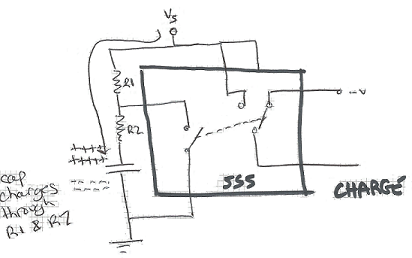 Vs
R1
R2
++++
+++++
cap
charges
through
R1 & R2
-V
555
CHARGE